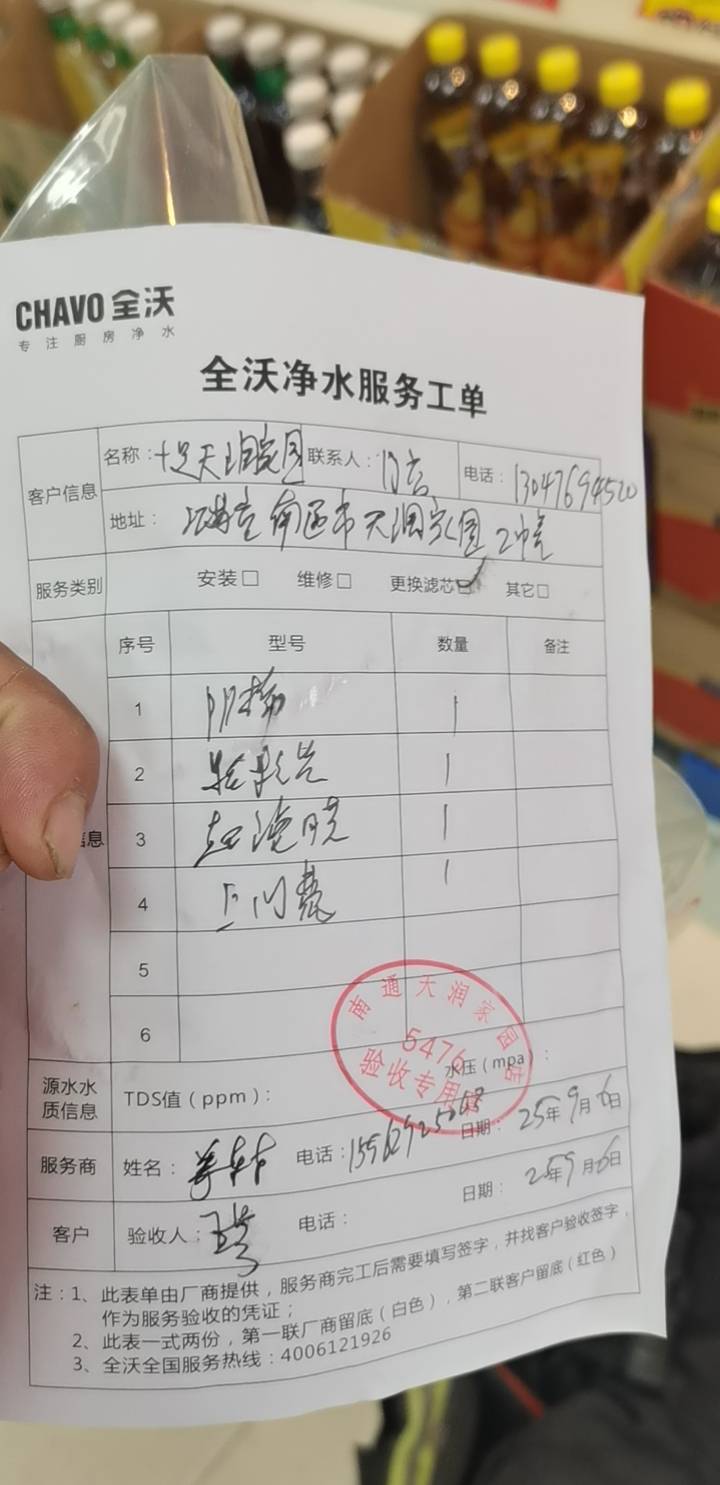 CHAVO 全沃
专注厨房净水
全沃净水服务工单
客户信息 名称：十足天润家园 联系人： 电话：13047694520
地址： 南通市天润家园2幢
服务类别 安装□ 维修□ 更换滤芯☑ 其它□
信息 序号 型号 数量 备注
1 1
2 1
3 1
4 上门费 1
5
6
南通天润家园店
5476
验收专用
源水水质信息 TDS值（ppm）： 水压（mpa）：
服务商 姓名： 电话： 日期：25年9月6日
客户 验收人： 电话： 日期：25年9月6日
注：1、此表单由厂商提供，服务商完工后需要填写签字，并找客户验收签字，
作为服务验收的凭证；
2、此表一式两份，第一联厂商留底（白色），第二联客户留底（红色）
3、全沃全国服务热线：4006121926